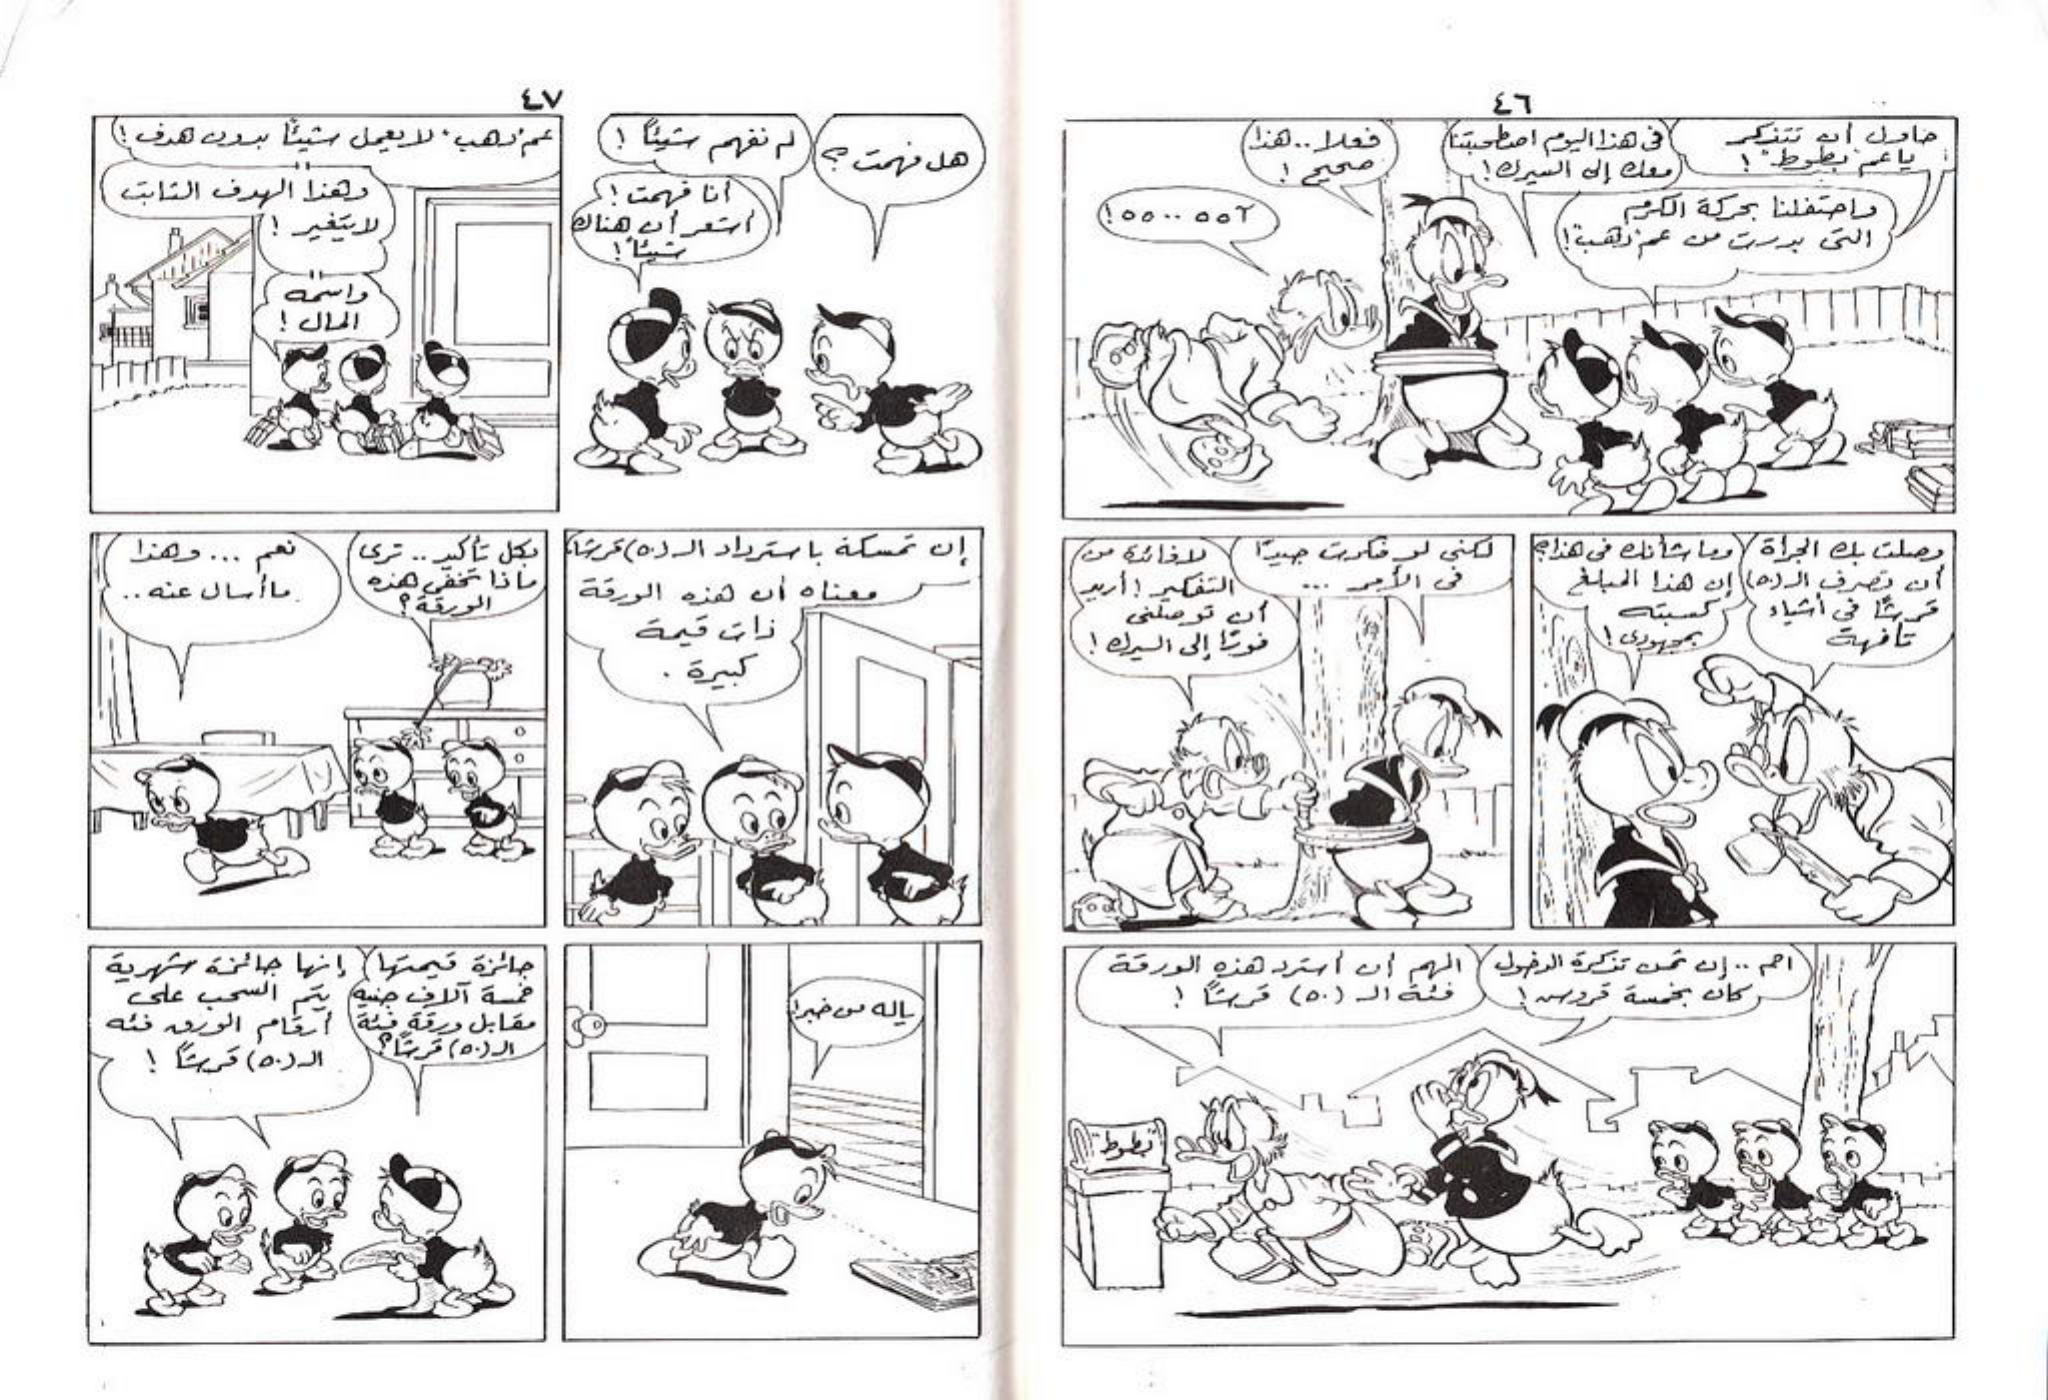 ٤٦
حاول أن تتذكر
يا عم "بطوط"!
فى هذا اليوم اصطحبتنا
معك إلى السيرك!
واحتفلنا بحركة الكرم
التى بدرت من عم "دهب"!
فعلا.. هذا
صحيح!
آ٥٥ .. ٥٥!
وصلت بك الجرأة
أن تصرف الـ (٥٠)
قرشًا فى أشياء
تافهة
وما شأنك فى هذا؟
إن هذا المبلغ
كسبته
بمجهودى!
لكنى لو فكرت جيدًا
فى الأمر ...
لا فائدة من
التفكير! أريد
أن توصلنى
فورًا إلى السيرك!
احم .. إن ثمن تذكرة الدخول
كان بخمسة قروش!
المهم أن أسترد هذه الورقة
فئة الـ (٥٠) قرشًا!
"بطوط"
٤٧
هل فهمت؟
لم نفهم شيئًا!
أنا فهمت!
أشعر أن هناك
شيئًا!
عم "دهب" لا يعمل شيئًا بدون هدف!
وهذا الهدف الثابت
لا يتغير!
واسمه
المال!
إن تمسكه باسترداد الـ (٥٠) قرشًا
معناه أن هذه الورقة
ذات قيمة
كبيرة.
بكل تأكيد .. ترى
ماذا تخفى هذه
الورقة؟
نعم ... وهذا
ما أسأل عنه ..
ياله من خبر!
جائزة قيمتها
خمسة آلاف جنيه
مقابل ورقة فئة
الـ (٥٠) قرشًا؟
إنها جائزة شهرية
يتم السحب على
أرقام الورق فئه
الـ (٥٠) قرشًا!